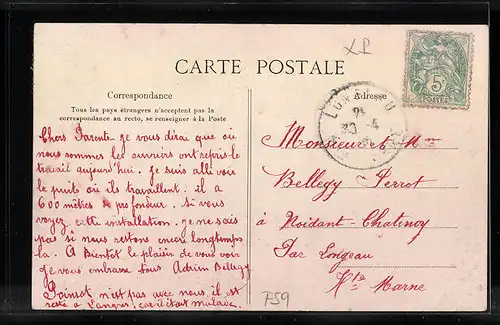 CARTE POSTALE
Correspondance
Tous les pays étrangers n'acceptent pas la
correspondance au recto, se renseigner à la Poste
Adresse
5
POSTES
25
Chers Parents je vous dirai que où
nous sommes les ouvriers ont repris le
travail aujourd'hui. Je suis allé voir
le puits où ils travaillent. il a
600 mètres de profondeur. Si vous
voyez cette installation. je ne sais
pas si nous restons encore longtemps
là. A Bientôt le plaisir de vous voir
Je vous embrasse tous Adrien Bellegy
Poinsot n'est pas avec nous il est
resté à Langres, car il était malade.
Monsieur et Mme
Bellegy Perrot
à Noidant-Chatenoy
Par Longeau
Hte Marne
F59